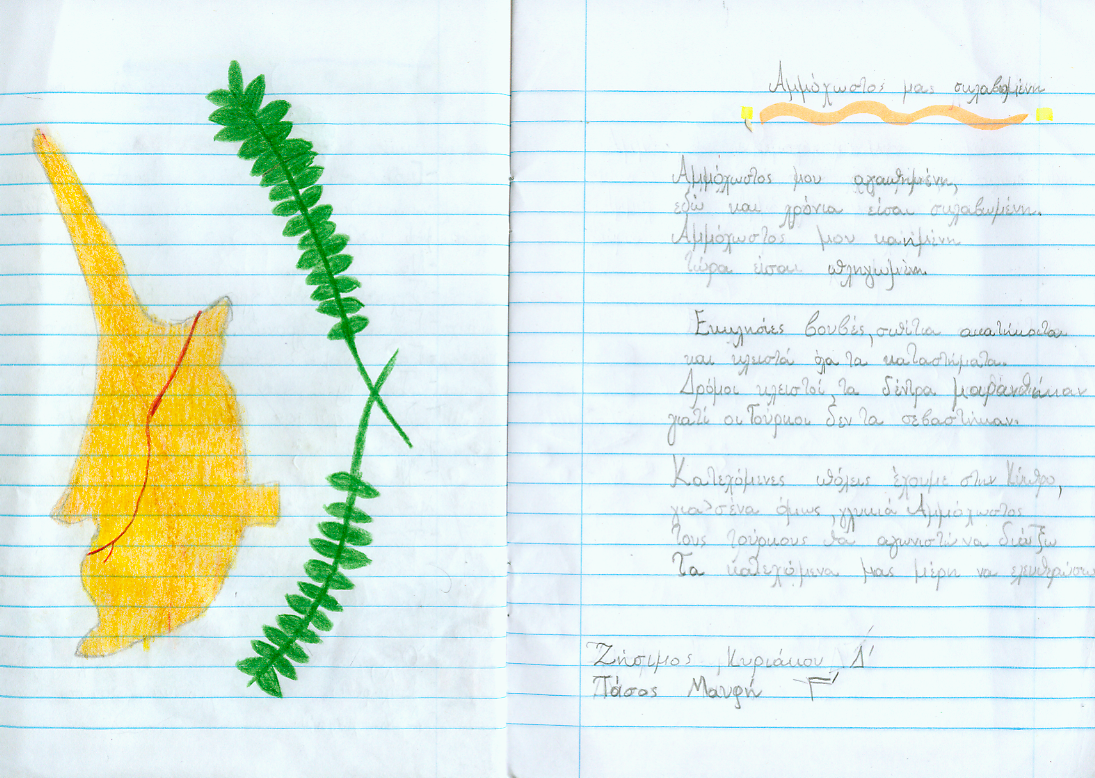 Αμμόχωστος μας σκλαβωμένη
Αμμόχωστος μου αγαπημένη,
εδώ και χρόνια είσαι σκλαβωμένη.
Αμμόχωστος μου καημένη
τώρα είσαι πληγωμένη
Εκκλησίες βουβές, σπίτια ακατοίκητα
και κλειστά όλα τα καταστήματα.
Δρόμοι κλειστοί, τα δέντρα μαράνθηκαν
γιατί οι Τούρκοι δεν τα σεβαστήκαν.
Κατεχόμενες πόλεις έχουμε στην Κύπρο,
για σένα όμως, γλυκιά Αμμόχωστος
τους τούρκους θα αγωνιστώ να διώξω
Τα κατεχόμενα μας μέρη να ελευθερώσω
Ζήσιμος Κυριάκου Δ'
Πάσος Μαυρή Γ'